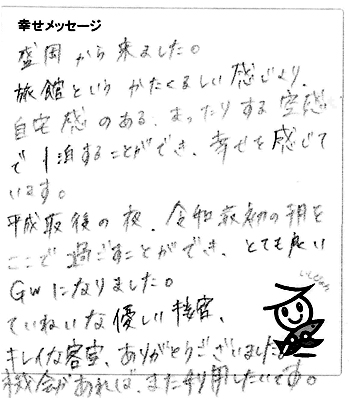 幸せメッセージ
盛岡から来ました。
旅館というかたくるしい感じより、
自宅感のある、まったりする空感
で1泊することができ、幸せを感じて
います。
平成最後の夜、令和最初の朝を
ここで過ごすことができ、とても良い
GWになりました。
ていねいな優しい接客、
キレイな客室、ありがとうございました。
機会があれば、また利用したいです。